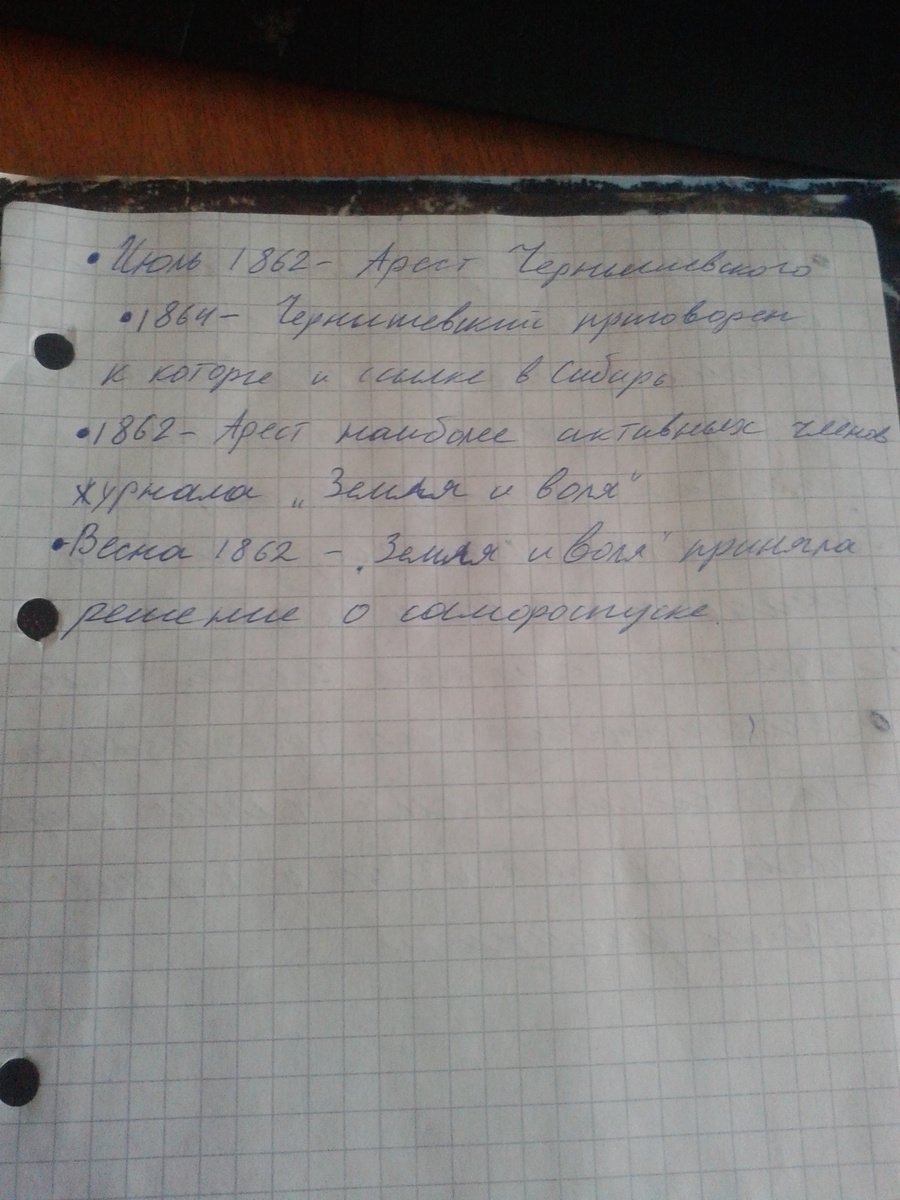 • Июль 1862 - Арест Чернышевского
• 1864 - Чернышевский приговорен
к каторге и ссылке в Сибирь
• 1862 - Арест наиболее активных членов
журнала „Земля и воля"
• Весна 1862 - „Земля и воля" приняла
решение о самороспуске.